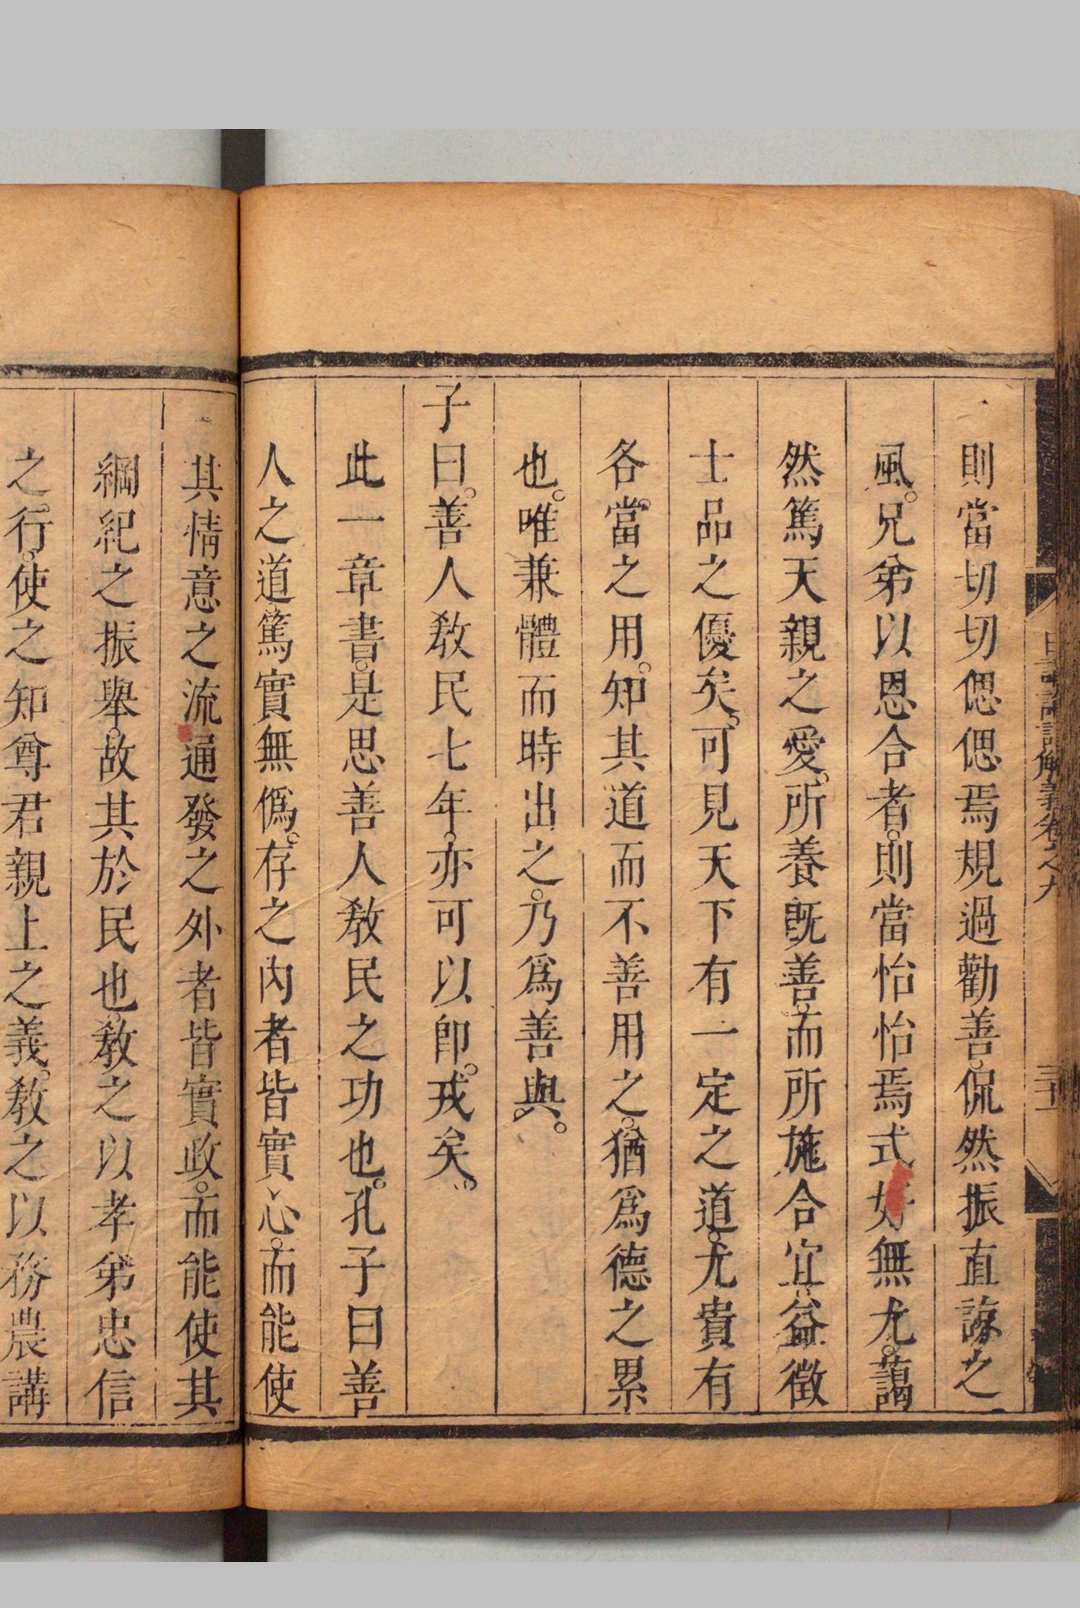 則當切切偲偲焉規過勸善侃然振直諒之
風兄弟以恩合者則當怡怡焉式好無尤藹
然篤天親之愛所養旣善而所施合宜益徵
士品之優矣可見天下有一定之道尤貴有
各當之用知其道而不善用之猶爲德之累
也唯兼體而時出之乃爲善與
子曰善人敎民七年亦可以卽戎矣
此一章書是思善人敎民之功也孔子曰善
人之道篤實無僞存之內者皆實心而能使
其情意之流通發之外者皆實政而能使其
綱紀之振舉故其於民也敎之以孝弟忠信
之行使之知尊君親上之義敎之以務農講